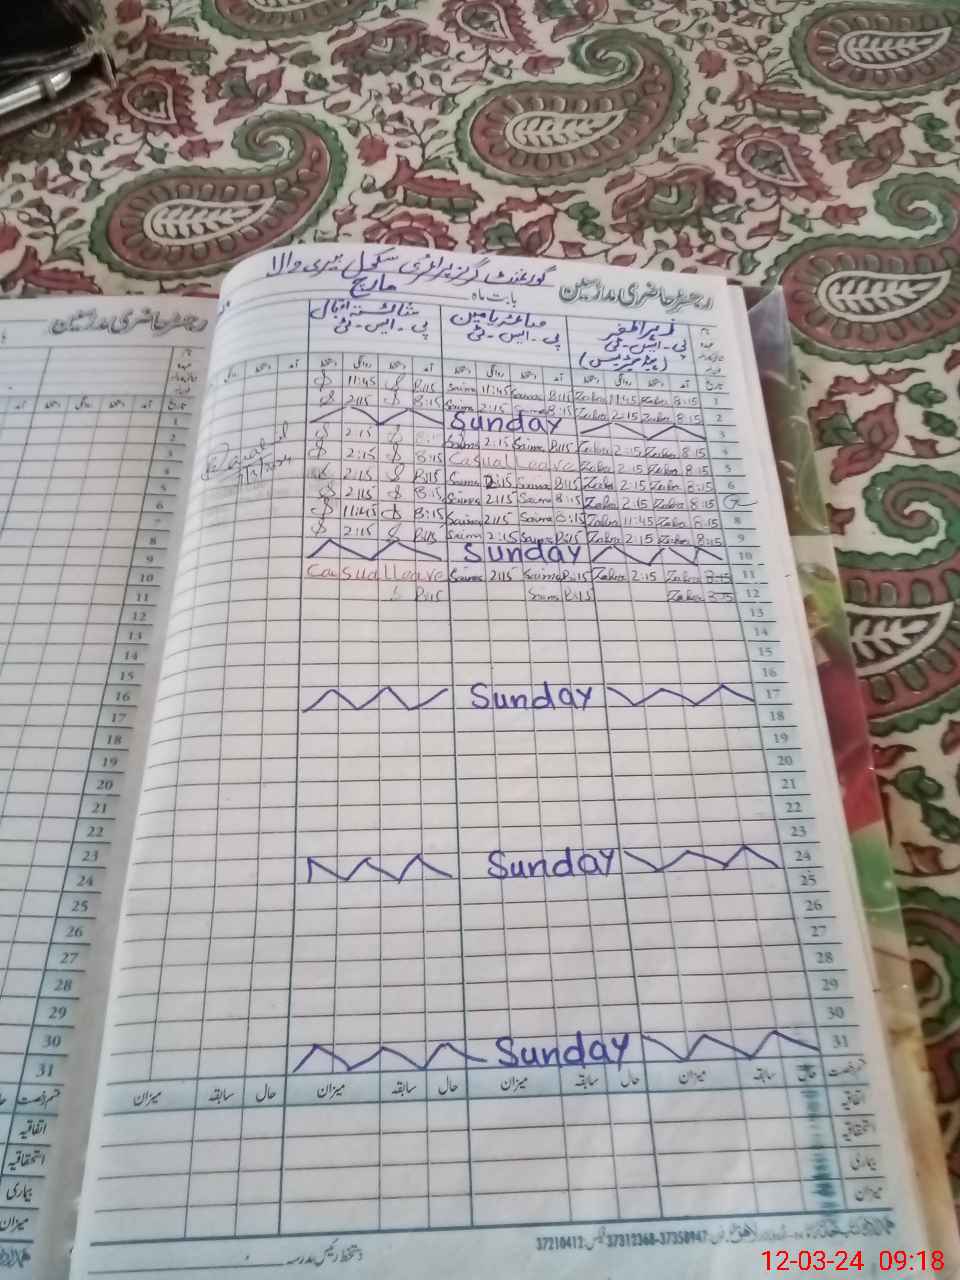 رجسٹر حاضری مدرسین
گورنمنٹ گرلز پرائمری سکول بیری والا
بابت ماہ مارچ
زہرا
پی۔ایس۔ٹی
صائمہ یامین
پی۔ایس۔ٹی
شائستہ اقبال
پی۔ایس۔ٹی
تاریخ آمد دستخط روانگی دستخط آمد دستخط روانگی دستخط آمد دستخط روانگی دستخط
1 8:15 Zahra 11:45 Zahra 8:15 Saima 11:45 Saima 8:15 11:45
2 8:15 Zahra 2:15 Zahra 8:15 Saima 2:15 Saima 8:15 2:15
3 Sunday
4 8:15 Zahra 2:15 Zahra 8:15 Saima 2:15 Saima 8:15 2:15
5 8:15 Zahra 2:15 Zahra Casual Leave 8:15 2:15
6 8:15 Zahra 2:15 Zahra 8:15 Saima 2:15 Saima 8:15 2:15
8:15 Zahra 2:15 Zahra 8:15 Saima 2:15 Saima 8:15 2:15
8 8:15 Zahra 11:45 Zahra 8:15 Saima 2:15 Saima 8:15 11:45
9 8:15 Zahra 2:15 Zahra 8:15 Saima 2:15 Saima 8:15 2:15
10 Sunday
11 8:15 Zahra 2:15 Zahra 8:15 Saima 2:15 Saima Casual Leave
12 8:15 Zahra 8:15 Saima 8:15
13
14
15
16
17 Sunday
18
19
20
21
22
23
24 Sunday
25
26
27
28
29
30
31 Sunday
قسم رخصت حال سابقہ میزان حال سابقہ میزان حال سابقہ میزان
اتفاقیہ
استحقاقیہ
بیماری
میزان
37210412 37312368-37350947
دستخط رئیس مدرسہ
رجسٹر حاضری مدرسین
تاریخ
1
2
3
4
5
6
7
8
9
10
11
12
13
14
15
16
17
18
19
20
21
22
23
24
25
26
27
28
29
30
31
قسم رخصت
اتفاقیہ
استحقاقیہ
بیماری
میزان
12-03-24 09:18